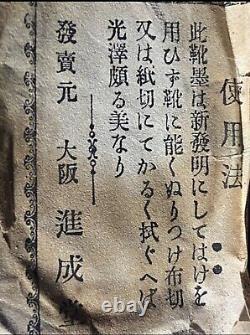 使用法
此靴墨は新發明にしてはけを
用ひず靴に能くぬりつけ布切
又は紙切にてかるく拭ぐへば
光澤頗る美なり
發賣元 大阪 進成堂
ebay